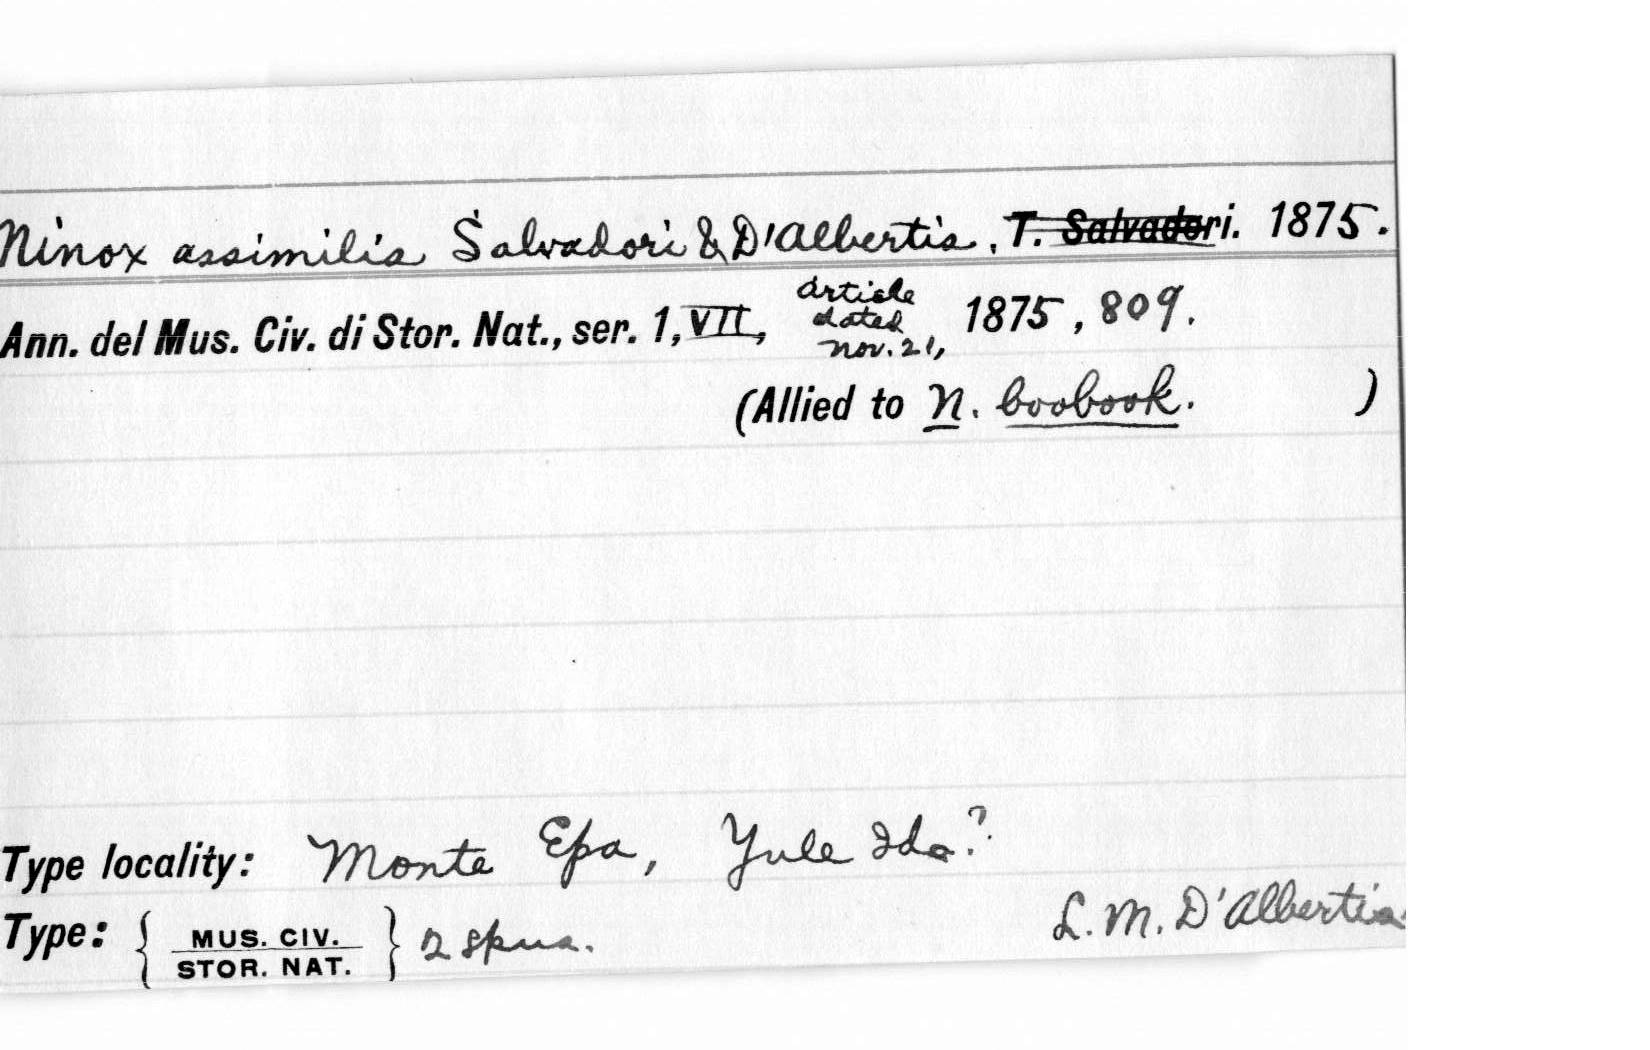 Ninox assimilis Salvadori & D'Albertis. T. Salvadori. 1875.
Ann. del Mus. Civ. di Stor. Nat., ser. 1, VII, article dated Nov. 21, 1875, 809.
(Allied to N. boobook. )
Type locality: Monte Epa, Yule Ids?
Type: { MUS. CIV. STOR. NAT. } 2 spms.
L. M. D'Albertis